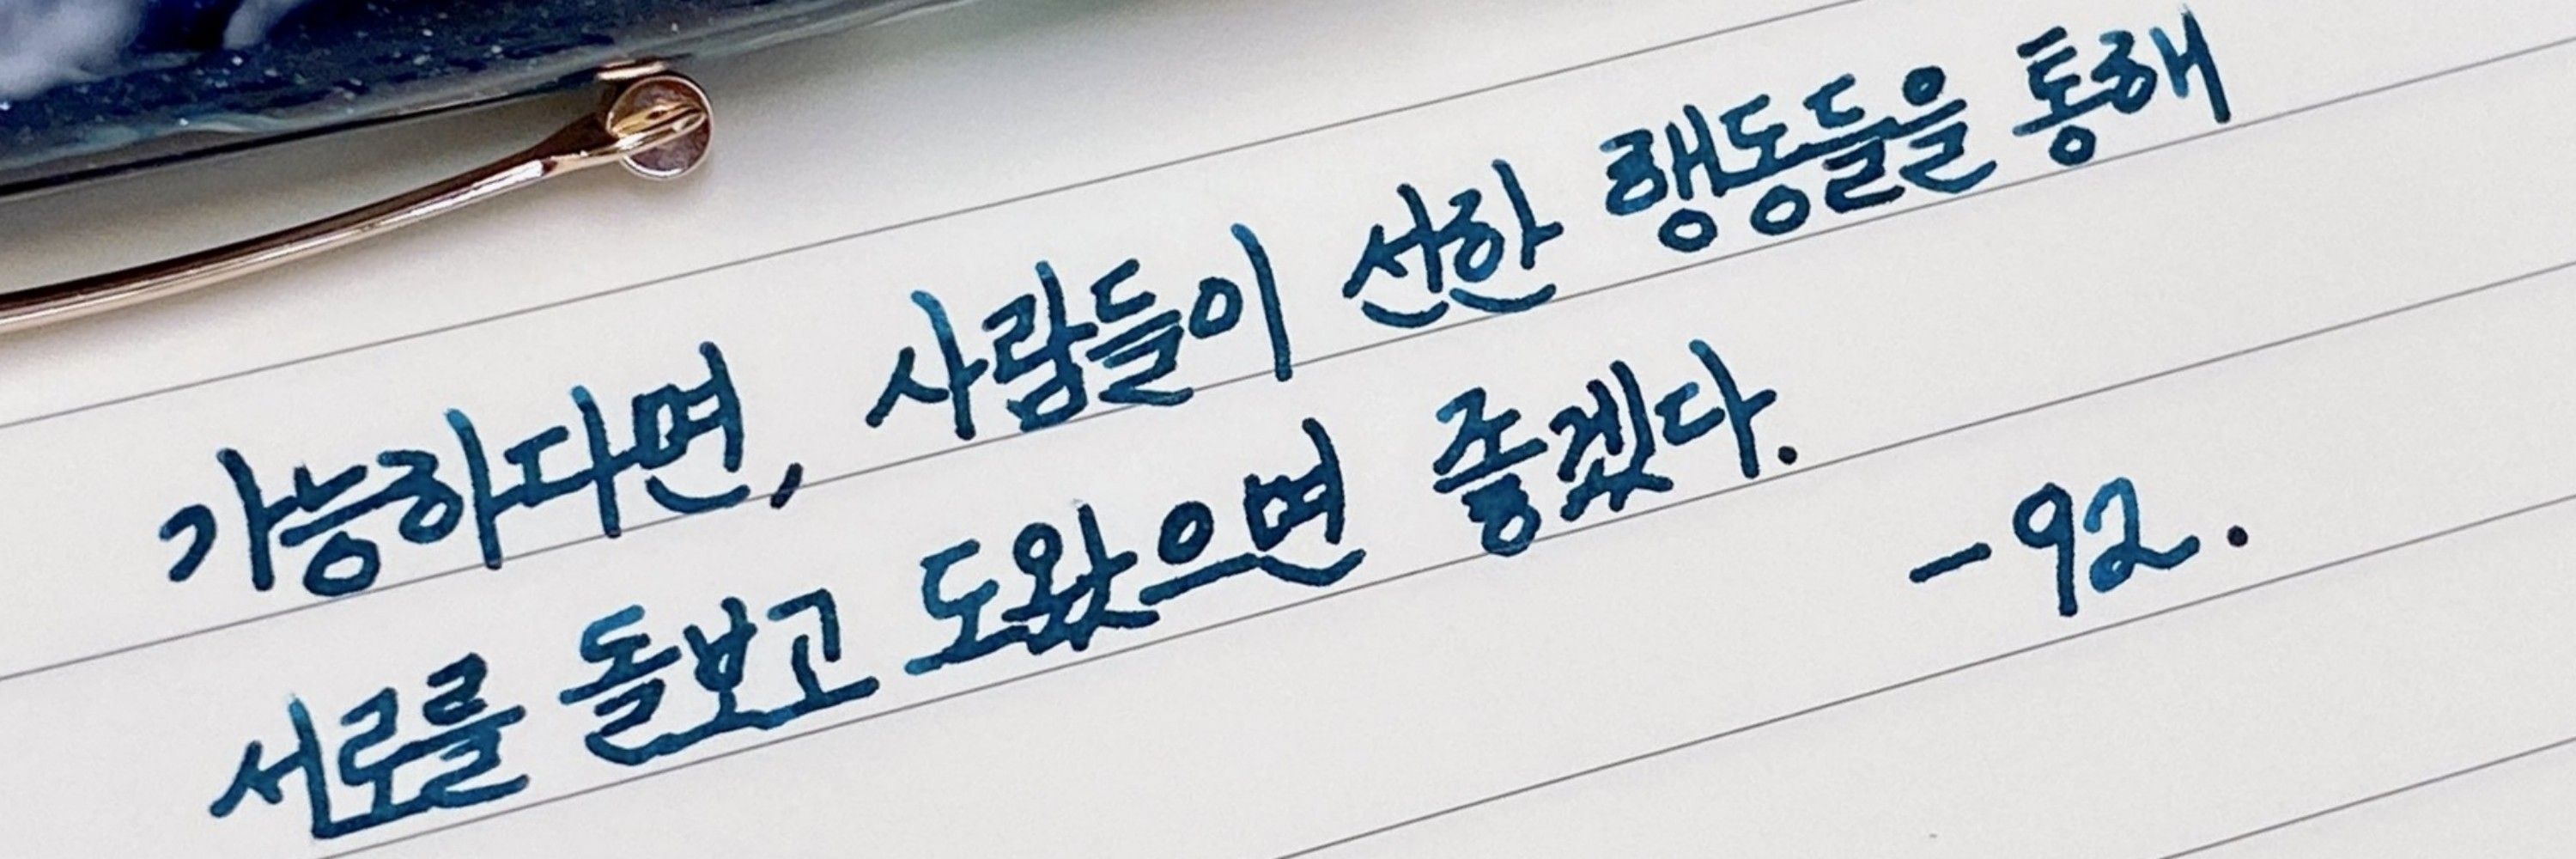 가능하다면, 사람들이 선한 행동들을 통해
서로를 돌보고 도왔으면 좋겠다.
-92.